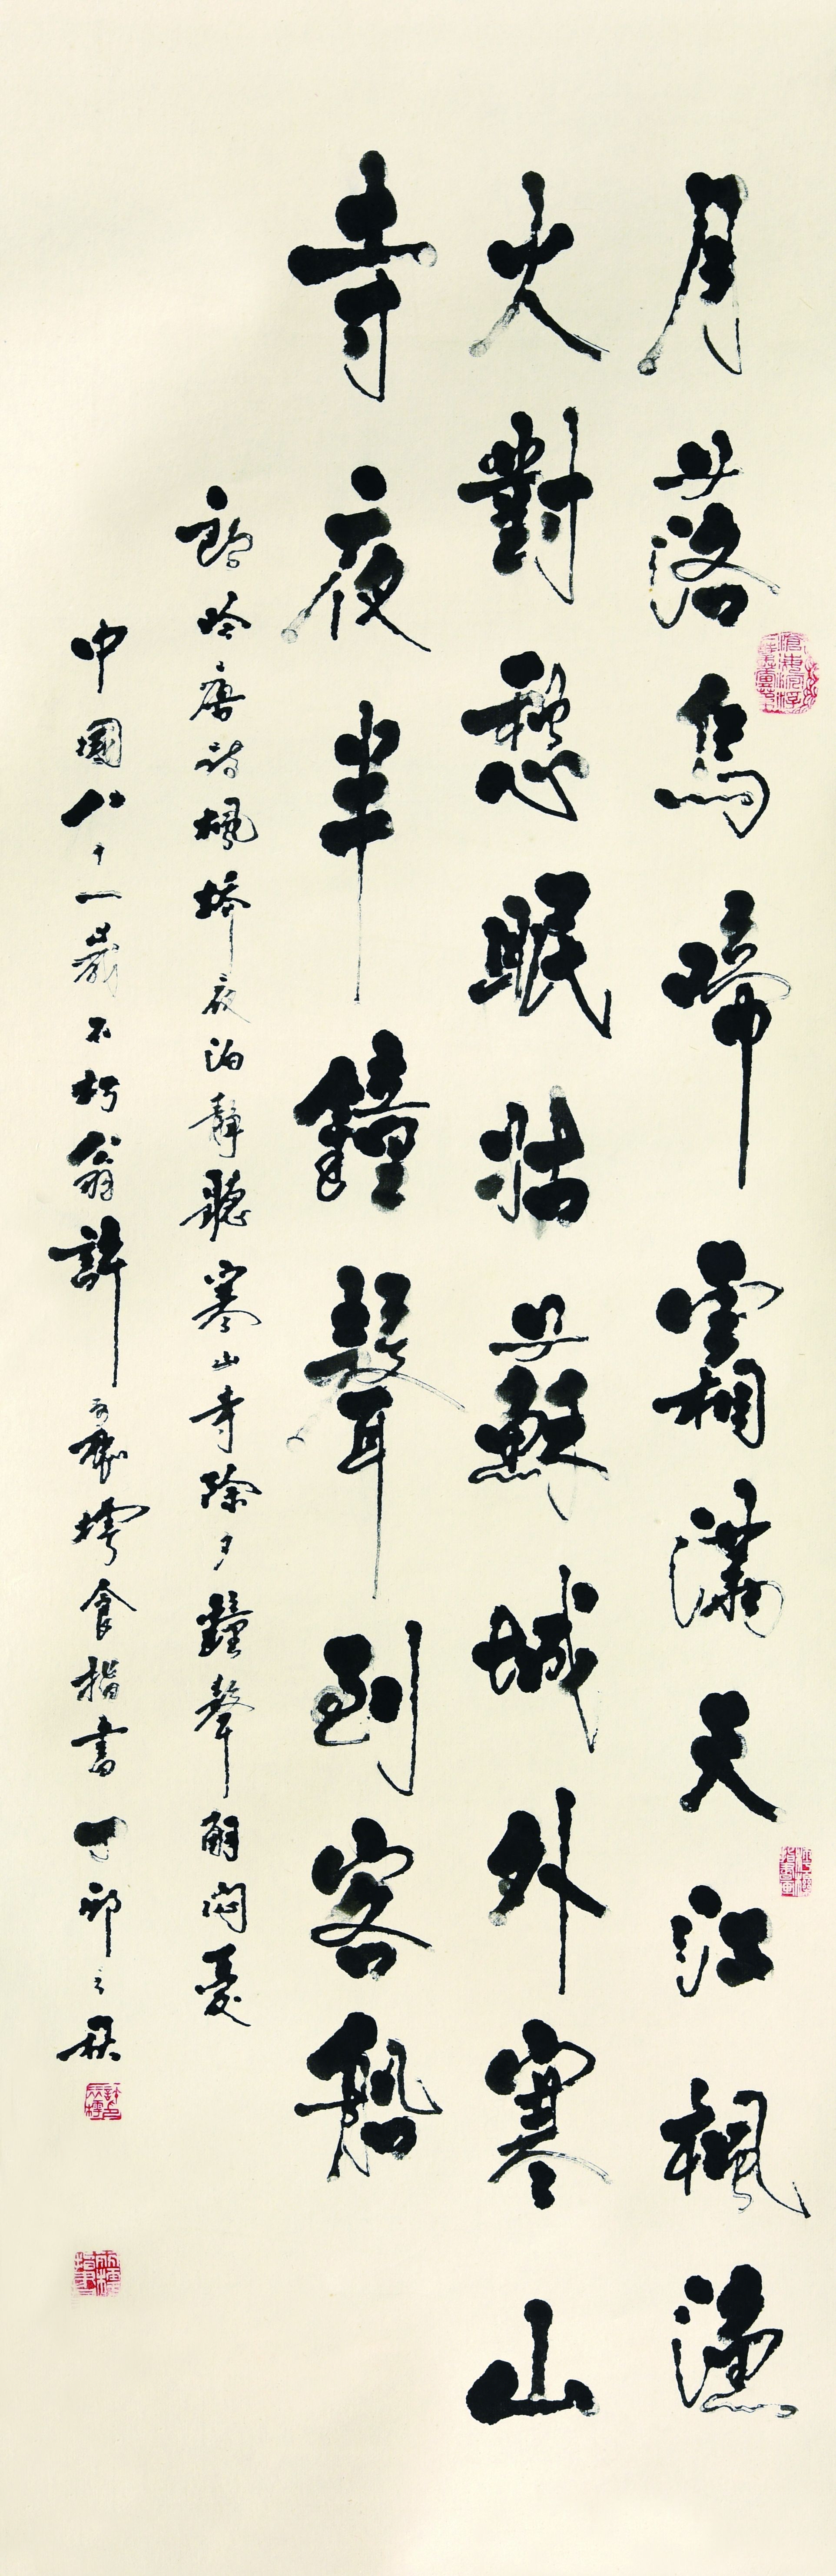 月落烏啼霜滿天江楓漁
火對愁眠姑蘇城外寒山
寺夜半鐘聲到客船
朗吟唐詩楓橋夜泊靜聽寒山寺除夕鐘聲解悶憂
中國八十一歲不朽翁許樗食指書丁卯之秋